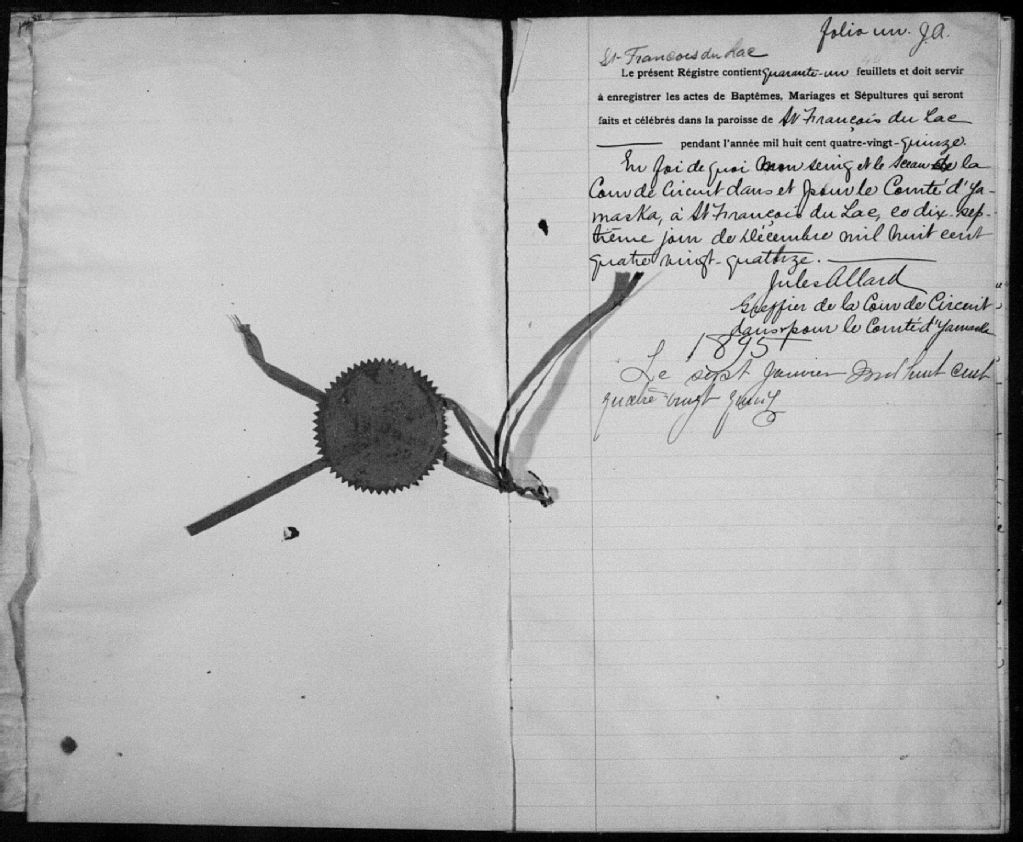 folio un. J.A.
St François du Lac
Le présent Régistre contient quarante-un feuillets et doit servir
à enregistrer les actes de Baptêmes, Mariages et Sépultures qui seront
faits et célébrés dans la paroisse de St François du Lac
pendant l'année mil huit cent quatre-vingt-quinze.
En foi de quoi mon seing et le sceau de la
Cour de Circuit dans et pour le Comté d'Ya-
maska, à St François du Lac, ce dix-sep-
tième jour de Décembre mil huit cent
quatre vingt-quatorze.
Jules Allard
Greffier de la Cour de Circuit
dans & pour le Comté d'Yamaska
1895
Le sept Janvier mil huit cent
quatre vingt quinz